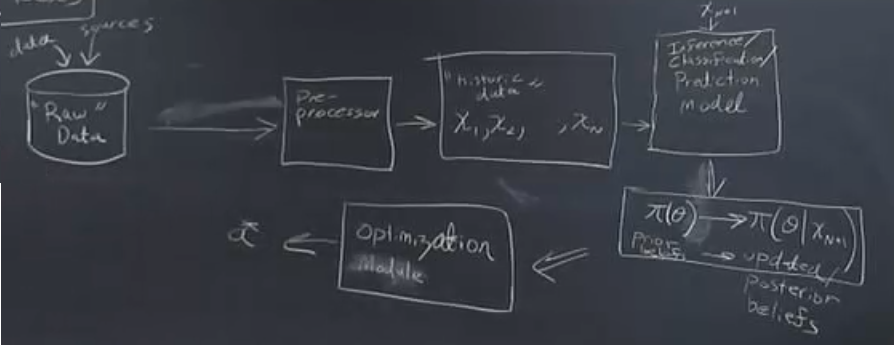 data sources
"Raw"
Data
Pre-
processor
"historic
data"
x₁, x₂, , x_N
x_{N+1}
Inference/
Classification/
Prediction
model
π(θ) → π(θ|x_{N+1})
Prior → updated/
beliefs
posterior
beliefs
Optimization
Module